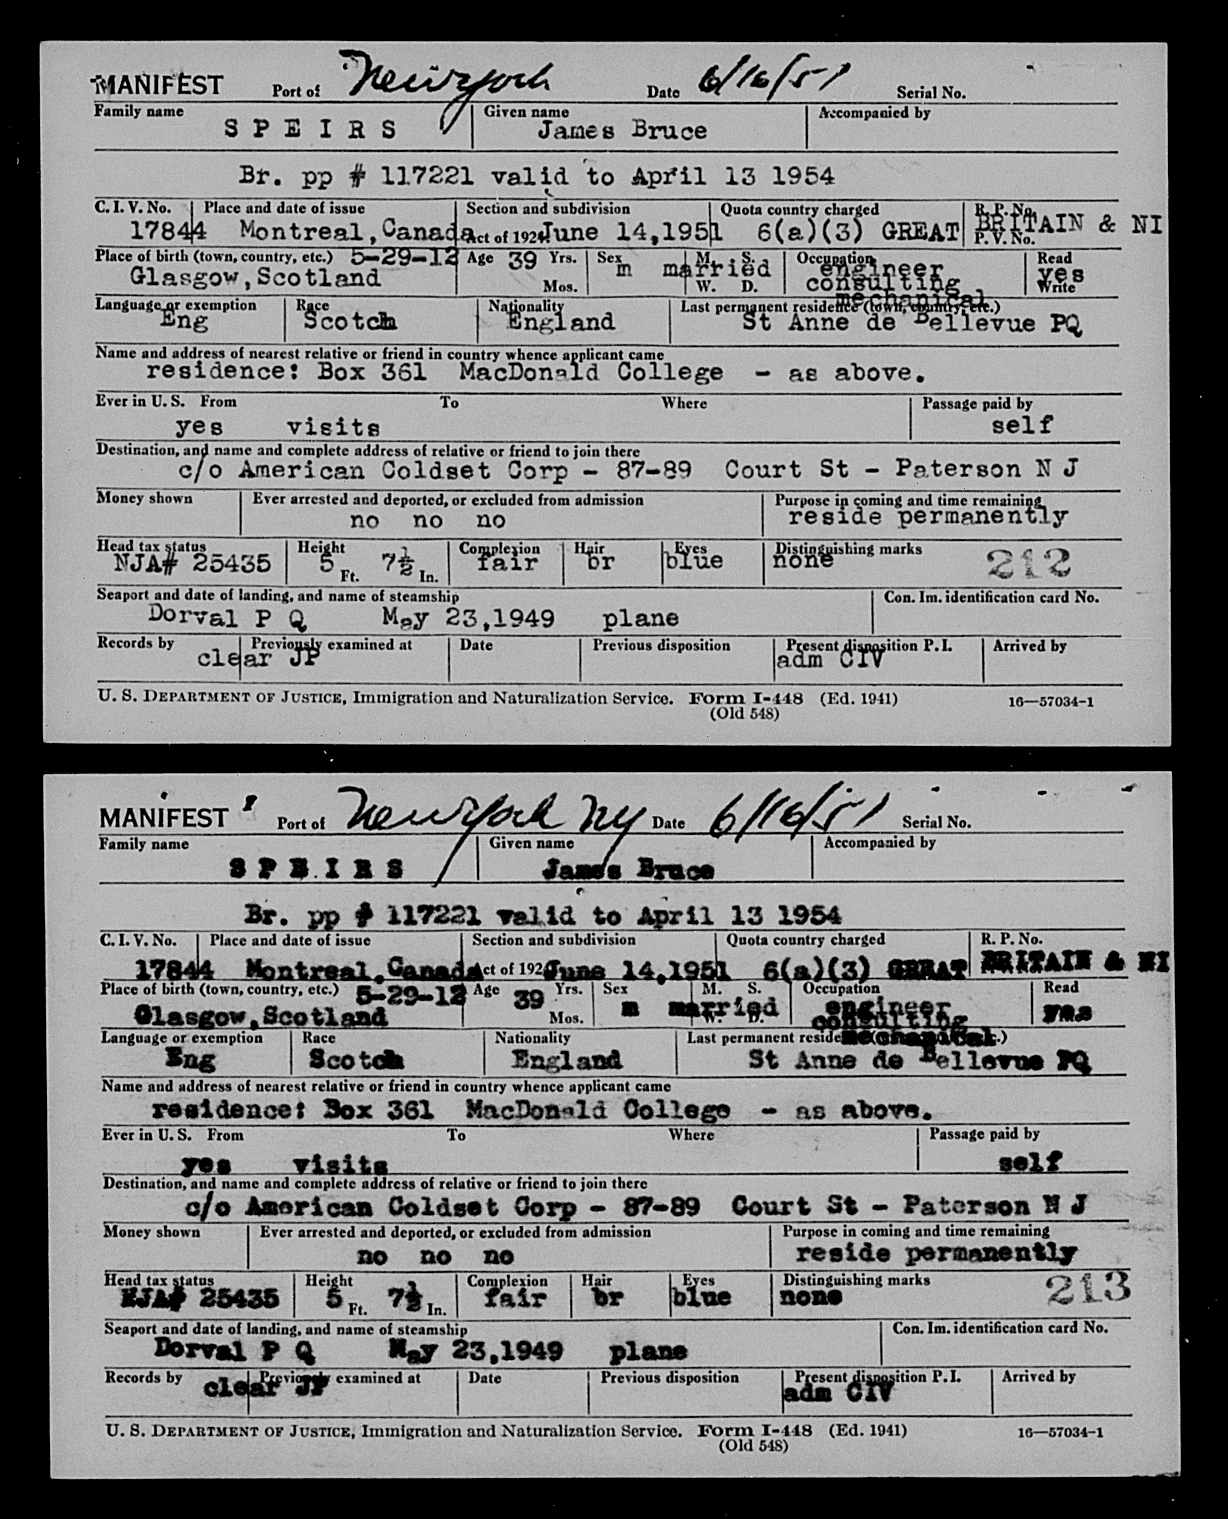 MANIFEST Port of New York Date 6/16/51 Serial No.
Family name Given name Accompanied by
S P E I R S James Bruce
Br. pp # 117221 valid to April 13 1954
C. I. V. No. Place and date of issue Section and subdivision Quota country charged R. P. No.
17844 Montreal, Canada Act of 1924 June 14,1951 6(a)(3) GREAT BRITAIN & NI
P. V. No.
Place of birth (town, country, etc.) 5-29-12 Age 39 Yrs. Sex M. S. Occupation Read
Glasgow,Scotland Mos. m married W. D. engineer yes
consulting Write
mechanical
Language or exemption Race Nationality Last permanent residence (town, country, etc.)
Eng Scotch England St Anne de Bellevue PQ
Name and address of nearest relative or friend in country whence applicant came
residence: Box 361 MacDonald College - as above.
Ever in U. S. From To Where Passage paid by
yes visits self
Destination, and name and complete address of relative or friend to join there
c/o American Coldset Corp - 87-89 Court St - Paterson N J
Money shown Ever arrested and deported, or excluded from admission Purpose in coming and time remaining
no no no reside permanently
Head tax status Height Complexion Hair Eyes Distinguishing marks
NJA# 25435 5 Ft. 7½ In. fair br blue none 212
Seaport and date of landing, and name of steamship Con. Im. identification card No.
Dorval P Q May 23,1949 plane
Records by Previously examined at Date Previous disposition Present disposition P. I. Arrived by
clear JP adm CIV
U. S. DEPARTMENT OF JUSTICE, Immigration and Naturalization Service. Form I-448 (Ed. 1941) 16—57034-1
(Old 548)
MANIFEST Port of New York NY Date 6/16/51 Serial No.
Family name Given name Accompanied by
S P E I R S James Bruce
Br. pp # 117221 valid to April 13 1954
C. I. V. No. Place and date of issue Section and subdivision Quota country charged R. P. No.
17844 Montreal, Canada Act of 1924 June 14,1951 6(a)(3) GREAT BRITAIN & NI
Place of birth (town, country, etc.) 5-29-12 Age 39 Yrs. Sex M. S. Occupation Read
Glasgow,Scotland Mos. m married W. D. engineer yes
consulting
mechanical
Language or exemption Race Nationality Last permanent reside .)
Eng Scotch England St Anne de Bellevue PQ
Name and address of nearest relative or friend in country whence applicant came
residence: Box 361 MacDonald College - as above.
Ever in U. S. From To Where Passage paid by
yes visits self
Destination, and name and complete address of relative or friend to join there
c/o American Coldset Corp - 87-89 Court St - Paterson N J
Money shown Ever arrested and deported, or excluded from admission Purpose in coming and time remaining
no no no reside permanently
Head tax status Height Complexion Hair Eyes Distinguishing marks
NJA# 25435 5 Ft. 7½ In. fair br blue none 213
Seaport and date of landing, and name of steamship Con. Im. identification card No.
Dorval P Q May 23,1949 plane
Records by Previously examined at Date Previous disposition Present disposition P. I. Arrived by
clear JP adm CIV
U. S. DEPARTMENT OF JUSTICE, Immigration and Naturalization Service. Form I-448 (Ed. 1941) 16—57034-1
(Old 548)